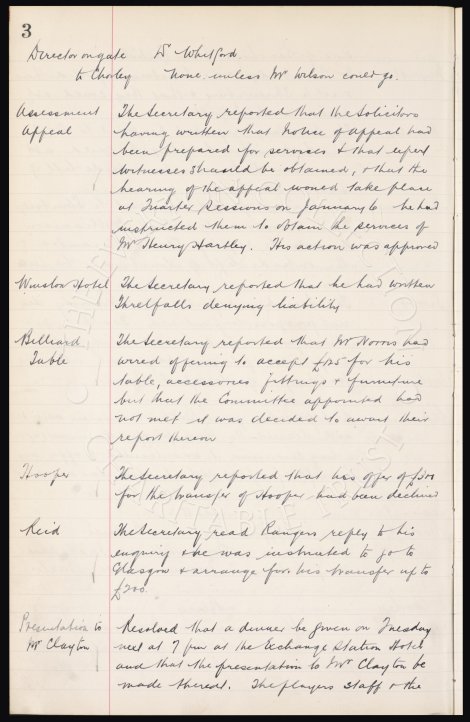 3
Director on gate Dr Whitford.
to Chorley None. unless Mr Wilson could go.
Assessment The Secretary reported that the Solicitors
Appeal having written that Notice of Appeal had
been prepared for services & that expert
witnesses should be obtained, & that the
hearing of the appeal would take place
at Quarter Sessions on January 6 he had
instructed them to obtain the services of
Mr Henry Hartley. His action was approved
Winslow Hotel The Secretary reported that he had written
Threlfalls denying liability
Billiard The Secretary reported that Mr Norris had
Table wired offering to accept £125 for his
table, accessories fittings & furniture
but that the Committee appointed had
not met it was decided to await their
report thereon
Hooper The Secretary reported that his offer of £300
for the transfer of Hooper had been declined
Reid The Secretary read Rangers reply to his
enquiry & he was instructed to go to
Glasgow & arrange for his transfer up to
£200.
Presentation to Resolved that a dinner be given on Tuesday
Mr Clayton next at 7 pm at the Exchange Station Hotel
and that the presentation to Mr Clayton be
made thereat. The players staff & the
CHARITABLE TRUST